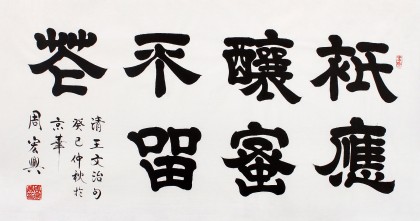 祇應
釀蜜
不留
花
清王文治句
癸巳仲秋於
京華
周宏興